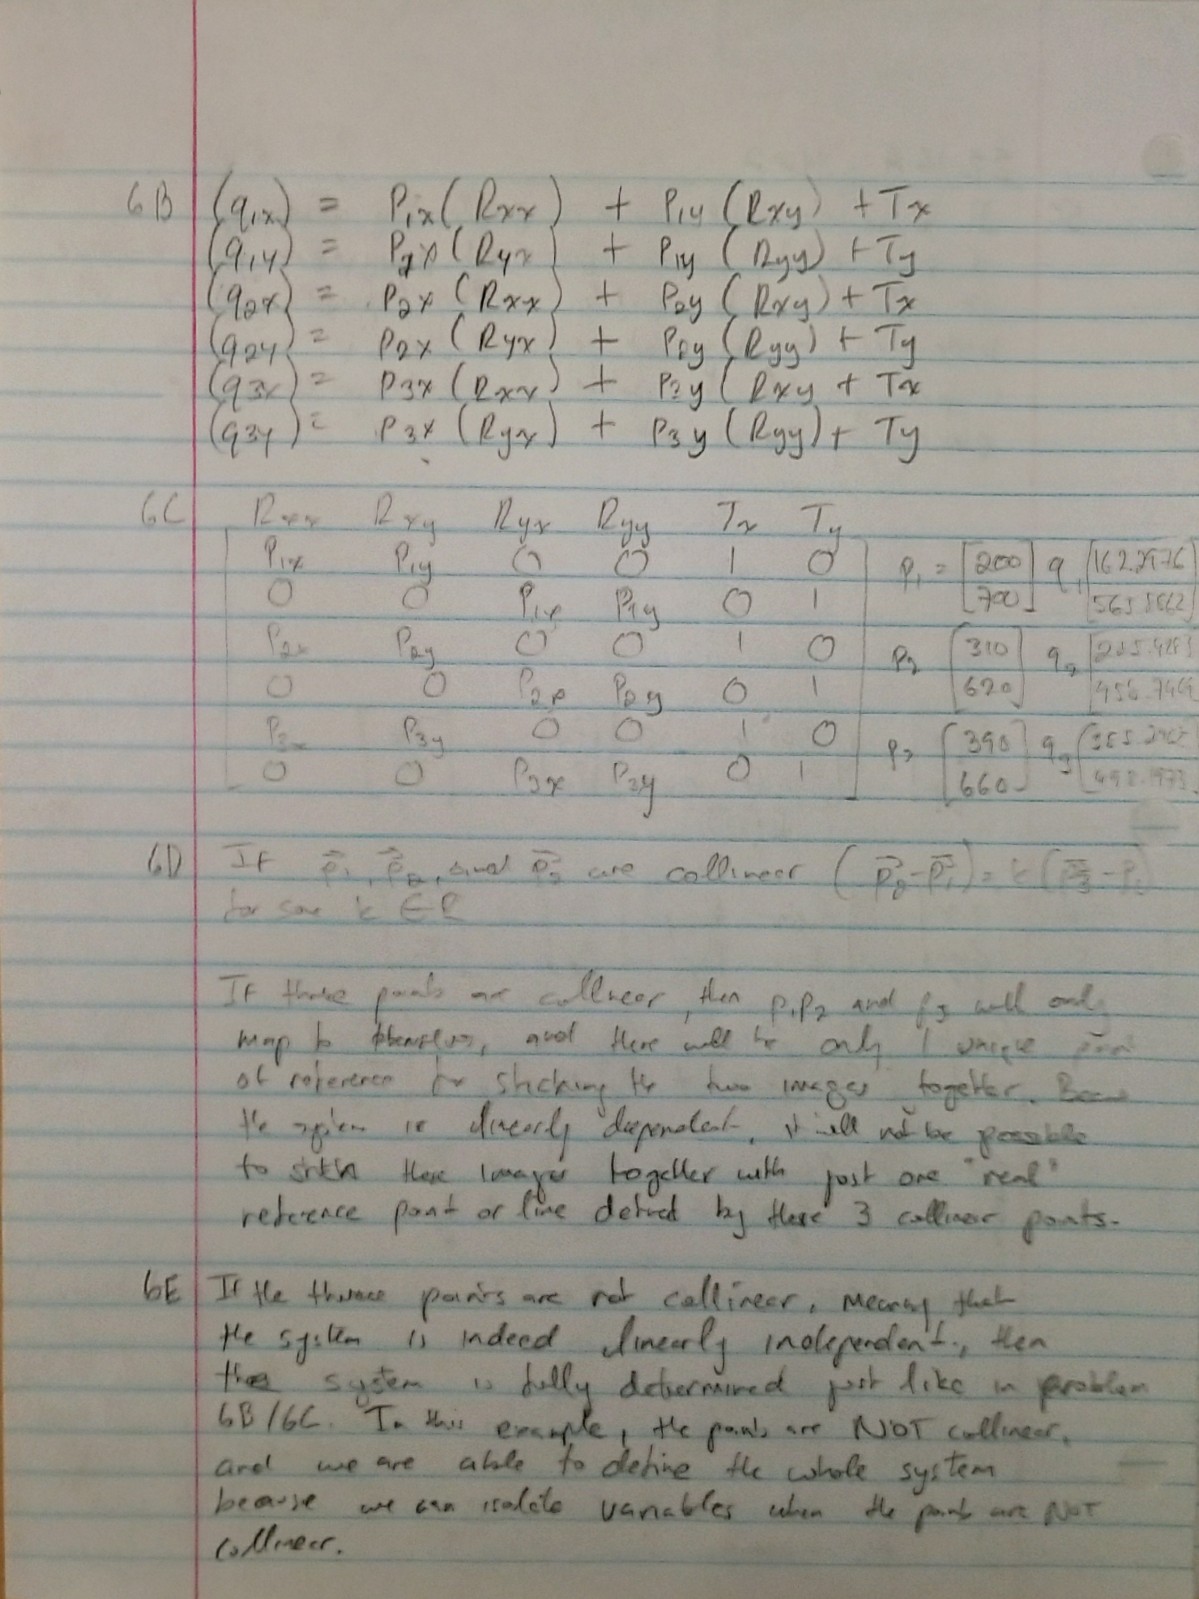 6B (q1x) = P1x(Rxx) + P1y(Rxy) + Tx
(q1y) = (Ryx) + P1y(Ryy) + Ty
(q2x) = P2x(Rxx) + P2y(Rxy) + Tx
(q2y) = P2x(Ryx) + P2y(Ryy) + Ty
(q3x) = P3x(Rxx) + P3y(Rxy + Tx
(q3y) = P3x(Ryx) + P3y(Ryy) + Ty
6C Rxx Rxy Ryx Ryy Tx Ty
P1x P1y 0 0 1 0 P1 = [200 q1 [162.2976
0 0 P1x P1y 0 1 700]
P2x P2y 0 0 1 0 P2 [310 q2
0 0 P2x P2y 0 1 620]
P3x P3y 0 0 1 0 P3 [390 q3
0 0 P3x P3y 0 1 660]
6D If p1, p2, and p3 are collinear (p2-p1) = k(p3-p1
for some k ∈ R
If these points are collinear, then p1 p2 and p3 will only
map to themselves, and there will be only 1 unique
of reference for stiching the two images together.
the system is linearly dependent, it will not be possible
to stitch these images together with just one "real"
reference point or line defined by these 3 collinear points.
6E If the points are not collinear, meaning that
the system is indeed linearly independent, then
the system is fully determined just like in problem
6B/6C. In this example, the points are NOT collinear,
and we are able to define the whole system
because we can isolate variables when the points are NOT
collinear.